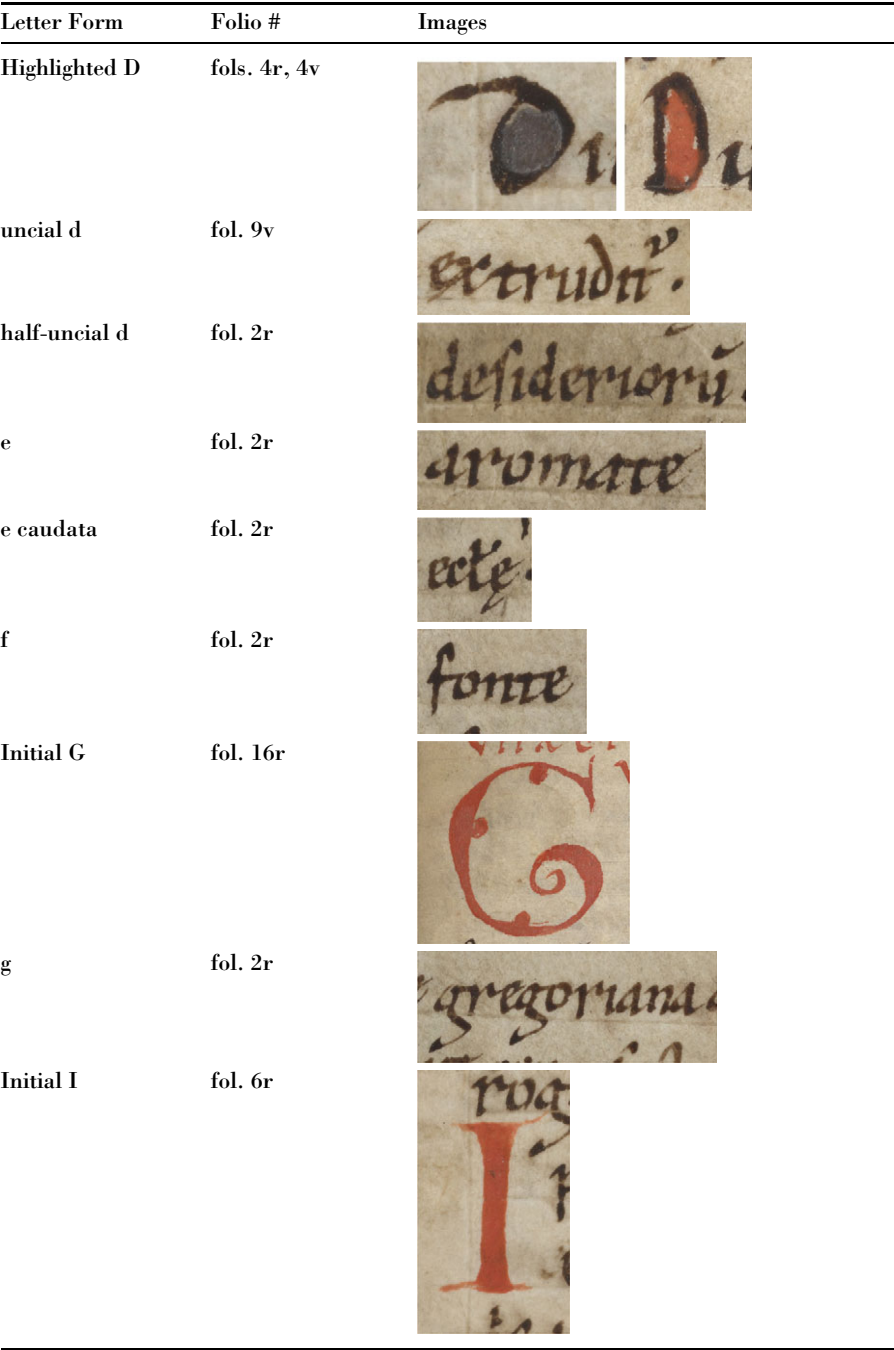 Letter Form Folio # Images
Highlighted D fols. 4r, 4v
uncial d fol. 9v
extrudit᷒.
half-uncial d fol. 2r
deſideriorū
e fol. 2r
aromate
e caudata fol. 2r
eclę
f fol. 2r
fonte
Initial G fol. 16r
G
g fol. 2r
gregoriana
Initial I fol. 6r
rog
I